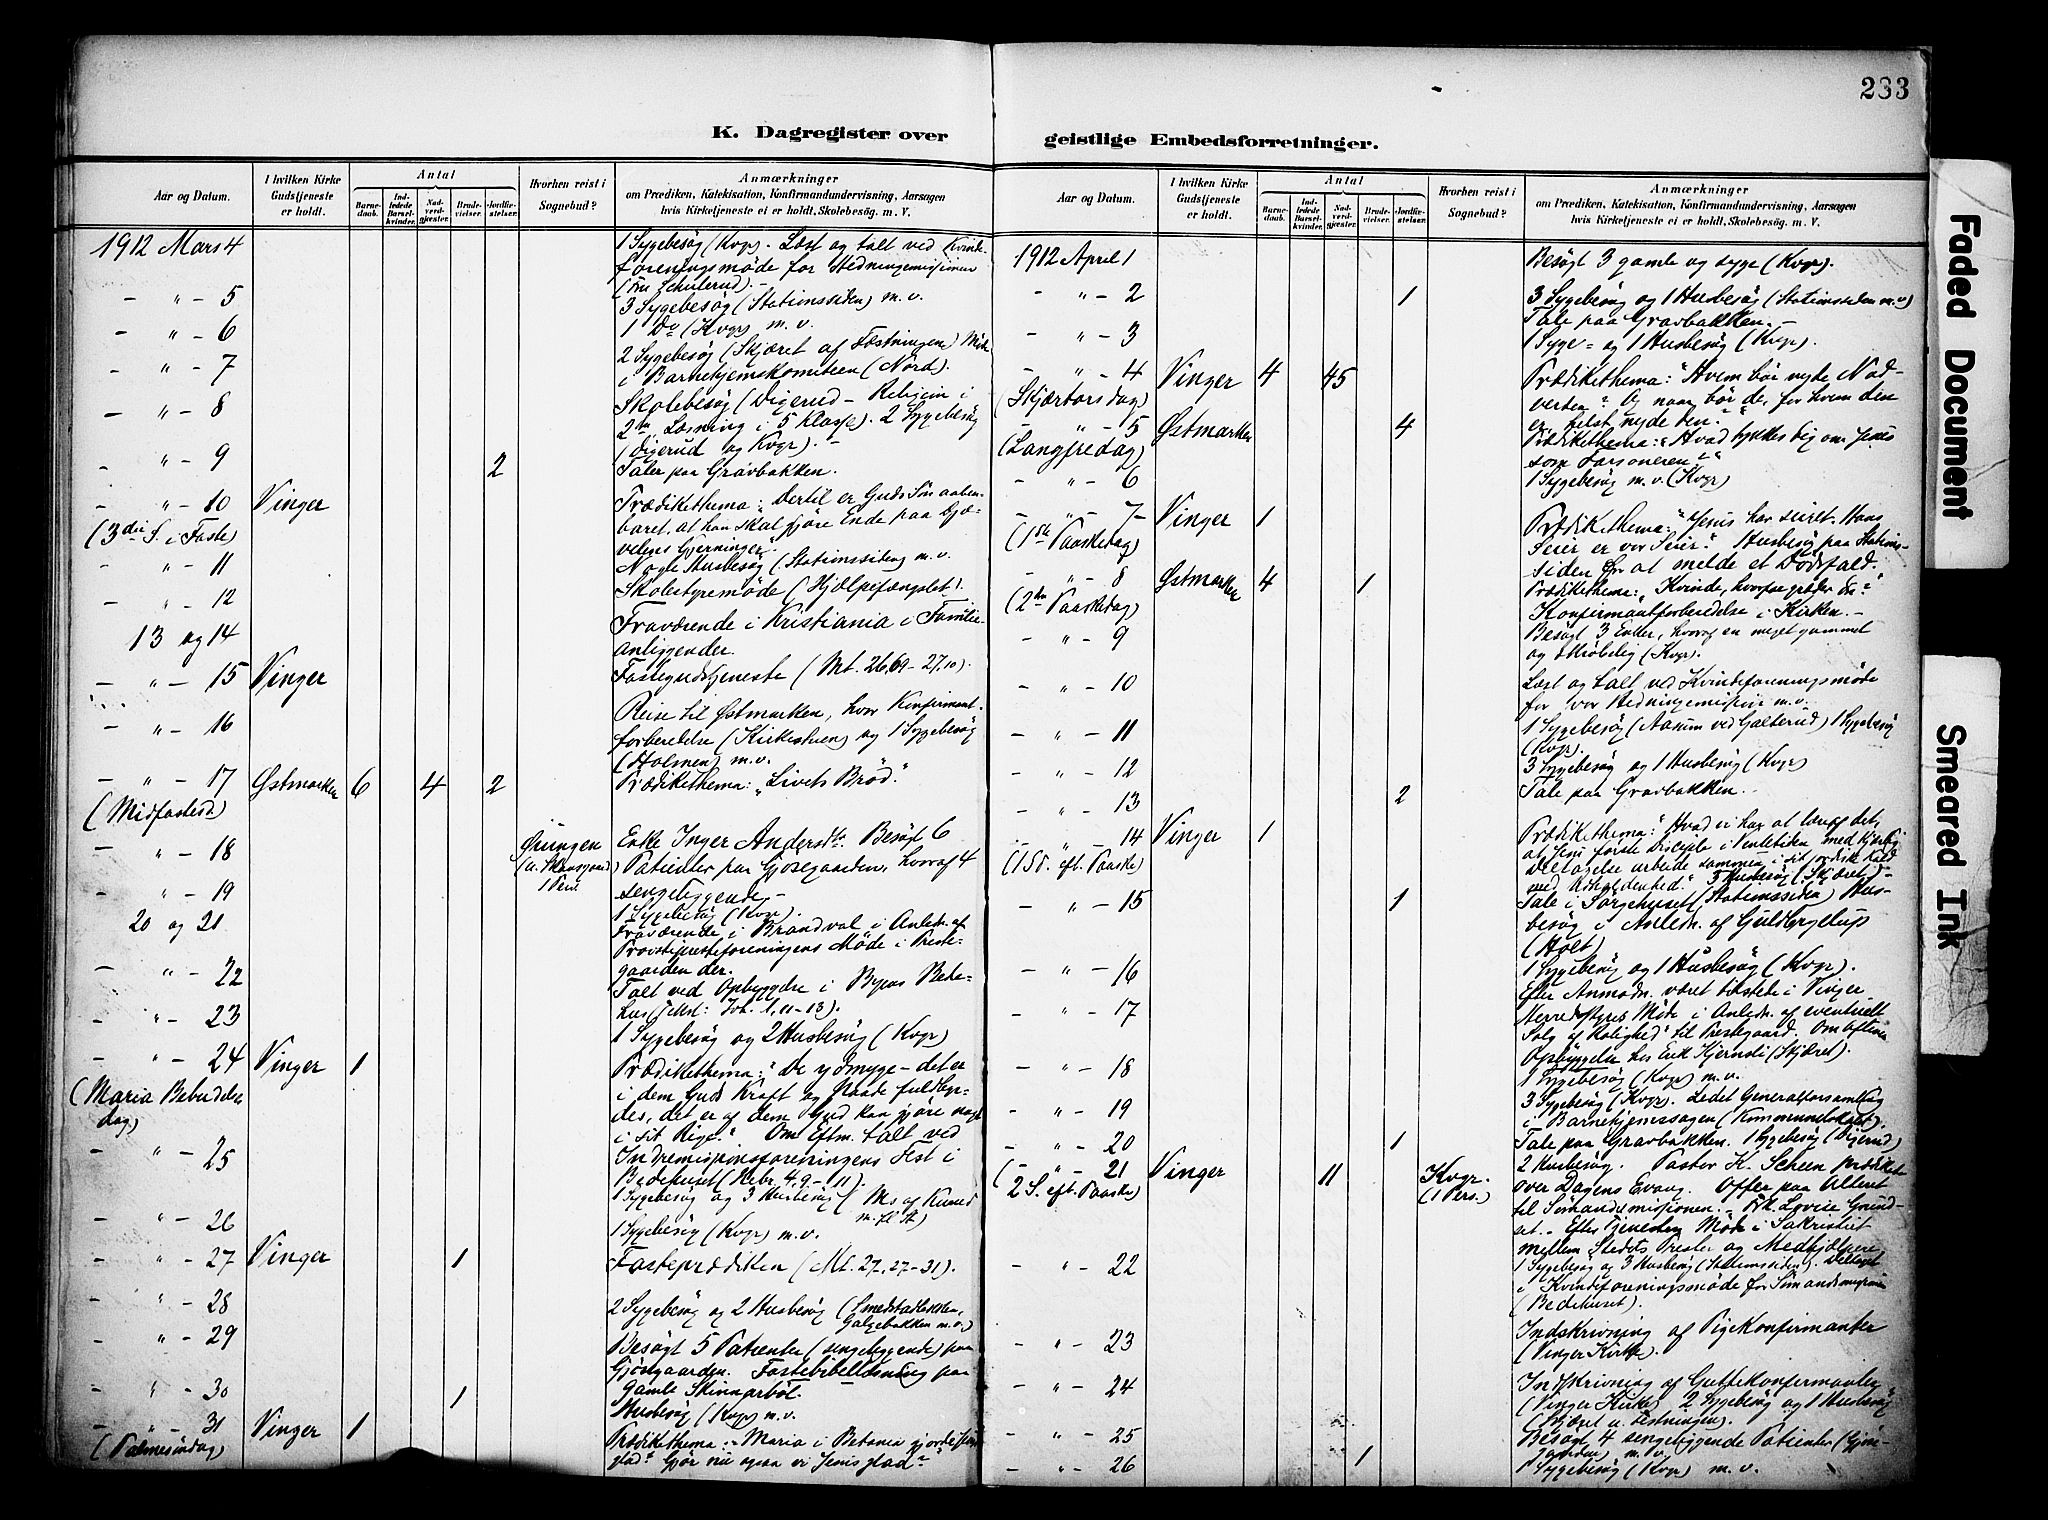 233
K. Dagregister over geistlige Embedsforretninger.
Aar og Datum.
I hvilken Kirke Gudstjeneste er holdt.
Antal
Barnedaab.
Indledede Barselkvinder.
Nadverdgjester.
Brudevielser.
Jordfæstelser.
Hvorhen reist i Sognebud?
Anmærkninger
om Prædiken, Katekisation, Konfirmandundervisning, Aarsagen
hvis Kirketjeneste ei er holdt, Skolebesøg. m. V.
1912 Mars 4 1 Sygebesøg (Kvgr). Læst og talt ved Kvinde-
foreningsmøde for Hedningemissionen
(Fru Schulerud). -
- " - 5 3 Sygebesøg (Stationssiden) m. v.
- " - 6 1 Do (Kvgr) m. v.
- " - 7 2 Sygebesøg (Skjæret af Fæstningen) Møde
i Barnehjemskomiteen (Nord).
- " - 8 Skolebesøg (Digerud - Religion i
2den Læsning i 5 Klasse). 2 Sygebesøg
(Digerud og Kvgr). -
- " - 9 2 Taler paa Gravbakken.
- " - 10 Vinger Prædikethema: "Dertil er Guds Søn aaben-
(3die S. i Faste) baret, at han skal gjøre Ende paa Djæ-
velens Gjerninger".
- " - 11 Nogle Husbesøg (Stationssiden) m. v.
- " - 12 Skolestyremøde (Hjælpefængslet).
13 og 14 Fraværende i Kristiania i Familie-
anliggender.
- " - 15 Vinger Fastegudstjeneste (Mt. 26,69 - 27,10).
- " - 16 Reise til Østmarken, hvor Konfirmant-
forberedelse (Kirkestuen) og 1 Sygebesøg
(Holmen) m. v.
- " - 17 Østmarken 6 4 2 Prædikethema: "Livets Brød."
(Midfastesd)
- " - 18 Enke Inger Andersdtr. Besøgt 6
1 Pers Patienter paa Gjøsegaarden, hvoraf 4
sengeliggende -
- " - 19 1 Sygebesøg (Kvgr).
20 og 21 Fraværende i Brandval i Anledn. af
Provstipresteforeningens Møde i Preste-
gaarden der.
- " - 22 Talt ved Opbyggelse i Byens Bede-
hus (Tekst: Joh. 1, 11-13).
- " - 23 1 Sygebesøg og 2 Husbesøg (Kvgr)
- " - 24 Vinger 1 Prædikethema: "De ydmyge - det er
(Maria Bebudelses i dem Guds Kraft og Naade fuldbyr-
dag) des, det er af dem Gud kan gjøre nogt
i sit Rige." Om Eftm. talt ved
- " - 25 Indremissionsforeningens Fest i
Bedehuset (Hebr. 4, 9-11).
1 Sygebesøg og 3 Husbesøg
- " - 26 1 Sygebesøg (Kvgr) m. v.
- " - 27 Vinger 1 Fasteprædiken (Mt. 27, 27-31).
- " - 28 2 Sygebesøg og 2 Husbesøg (Smedstadbakken,
Galgebakken m. v.)
- " - 29 Besøgt 5 Patienter (sengeliggende) paa
Gjøsegaarden. Fastebibellæsning paa
- " - 30 1 gamle Skinnarbøl.
Husbesøg (Kvgr) m. v.
- " - 31 Vinger 1 Prædikethema: "Maria i Betania gjorde Jesus
(Palmesøndag) glad" Gjør nu ogsaa vi Jesus glad?"
Aar og Datum.
I hvilken Kirke Gudstjeneste er holdt.
Antal
Barnedaab.
Indledede Barselkvinder.
Nadverdgjester.
Brudevielser.
Jordfæstelser.
Hvorhen reist i Sognebud?
Anmærkninger
om Prædiken, Katekisation, Konfirmandundervisning, Aarsagen
hvis Kirketjeneste ei er holdt, Skolebesøg. m. V.
1912 April 1 Besøgt 3 gamle og syge (Kvgr).
- " - 2 1 3 Sygebesøg og 1 Husbesøg (Stationssiden m. v)
Tale paa Gravbakken. -
- " - 3 1 Syge= og 1 Husbesøg (Kvgr).
- " - 4 Vinger 4 45 Prædikethema: "Hvem bør nyde Nad-
(Skjærtorsdag) verden? Og naar bør de, for hvem den
er, helst nyde den?"
- " - 5 Østmarken 4 Prædikethema: "Hvad tykkes dig om Jesus
(Langfredag) som Forsoneren?"
- " - 6 1 Sygebesøg m. v. (Kvgr)
- " - 7 Vinger 1 Prædikethema: "Jesus har seiret. Hans
(1ste Paaskedag) Seier er vor Seier." 1 Husbesøg paa Stations-
siden for at melde et Dødsfald.
- " - 8 Østmarken 4 1 Prædikethema: "Kvinde, hvorfor græder du?"
(2den Paaskedag) Konfirmantforberedelse i Kirken. -
- " - 9 Besøgt 3 Enker, hvoraf en meget gammel
og skrøbelig (Kvgr).
- " - 10 Læst og talt ved Kvindeforeningsmøde
for vor Hedningemission m. v.
- " - 11 1 Sygebesøg (Aarum ved Galterud) 1 Sygebesøg
(Kvgr).
- " - 12 3 Sygebesøg og 1 Husbesøg (Kvgr)
- " - 13 2 Tale paa Gravbakken.
- " - 14 Vinger 1 Prædikethema: "Hvad vi har at lære af det,
(1 S. eft. Paaske) at Jesu første Disciple i Ventetiden med
Deltagelse arbeide sammen i sit jordisk Kald
med Udholdenhed." 3 Husbesøg (Skjæret) -
- " - 15 1 Tale i Sørgehuset (Stationssiden) Hus-
besøg i Anledn. af Guldbryllup
(Holt)
- " - 16 1 Sygebesøg og 1 Husbesøg (Kvgr).
- " - 17 Efter Anmodn. været tilstede i Vinger
Herredsstyres Møde i Anledn. af eventuelt
Salg af "Rolighed" til Prestegaard. Om Aftenen
Opbyggelse hos Erik Kjernsli (Skjæret).
- " - 18 1 Sygebesøg (Kvgr) m. v.
- " - 19 3 Sygebesøg (Kvgr). Ledet Generalforsamling
i Barnehjemssagen (Kommunelokalet).
- " - 20 1 Tale paa Gravbakken. 1 Sygebesøg (Digerud)
- " - 21 Vinger 11 Kvgr. 2 Husbesøg. Pastor K. Scheen prædiket
(2 S. eft. Paaske) (1 Pers.) over Dagens Evang. Offer paa Alteret
til Sømandsmissionen. - Frk. Lovise Grund-
set. - Efter Tjenesten Møde i Sakristiet
mellem Stedets Prester og Medhjælpere
- " - 22 1 Sygebesøg og 3 Husbesøg (Stationssiden). Deltaget
i Kvindeforeningsmøde for Sømandsmission
(Bedehuset).
- " - 23 Indskrivning af Pigekonfirmanter
(Vinger Kirke).
- " - 24 Indskrivning af Guttekonfirmanter
(Vinger Kirke) 2 Sygebesøg og 1 Husbesøg
(Skjæret u. Festningen).
- " - 25 Besøgt 4 sengeliggende Patienter (Gjøse-
gaarden) m. v.
- " - 26 1 1 Sygebesøg (Kvgr) m. v.
Faded Document
Smeared Ink